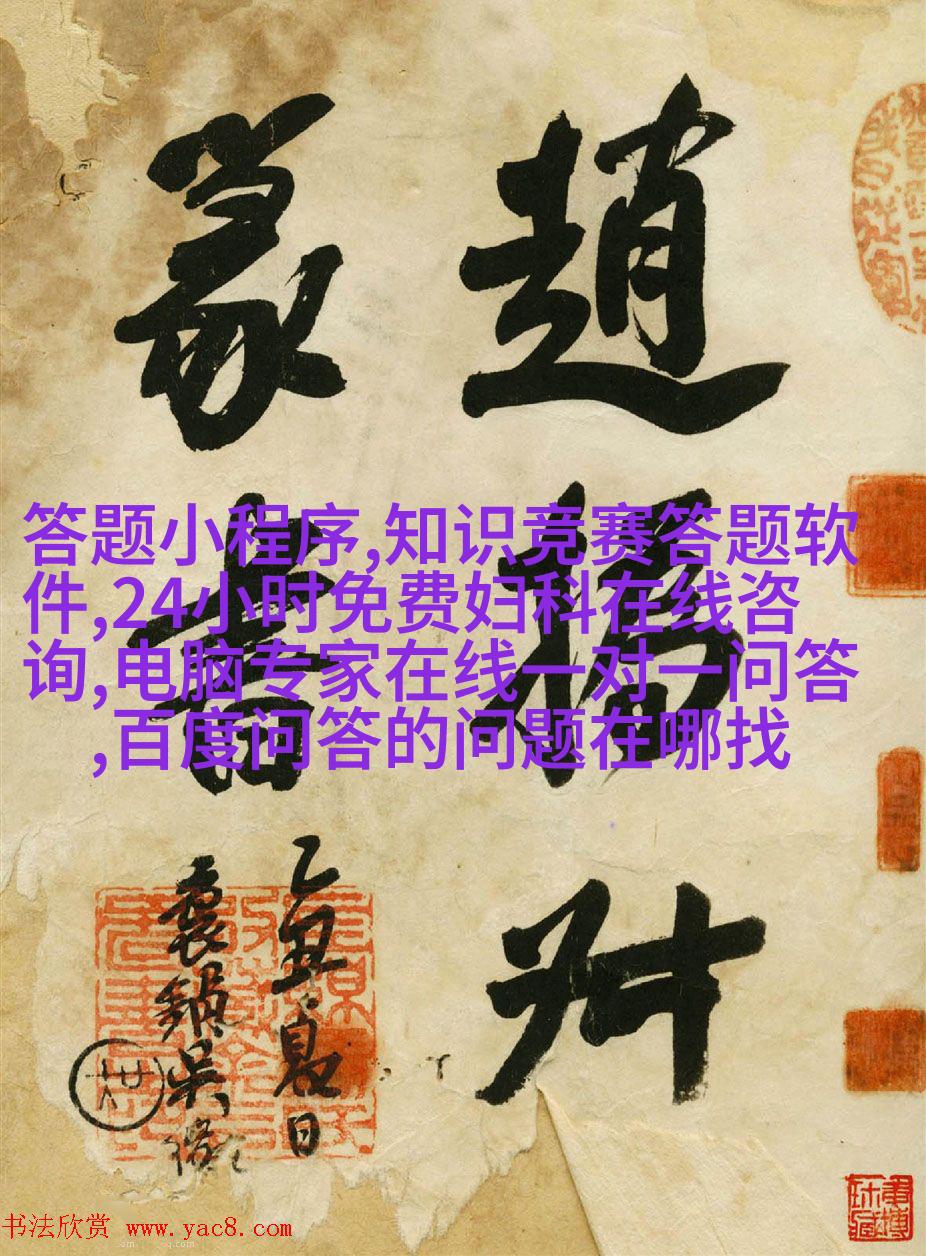 趙撝叔
篆書
夏日
答题小程序,知识竞赛答题软
件,24小时免费妇科在线咨
询,电脑专家在线一对一问答
,百度问答的问题在哪找
书法欣赏 www.yac8.com